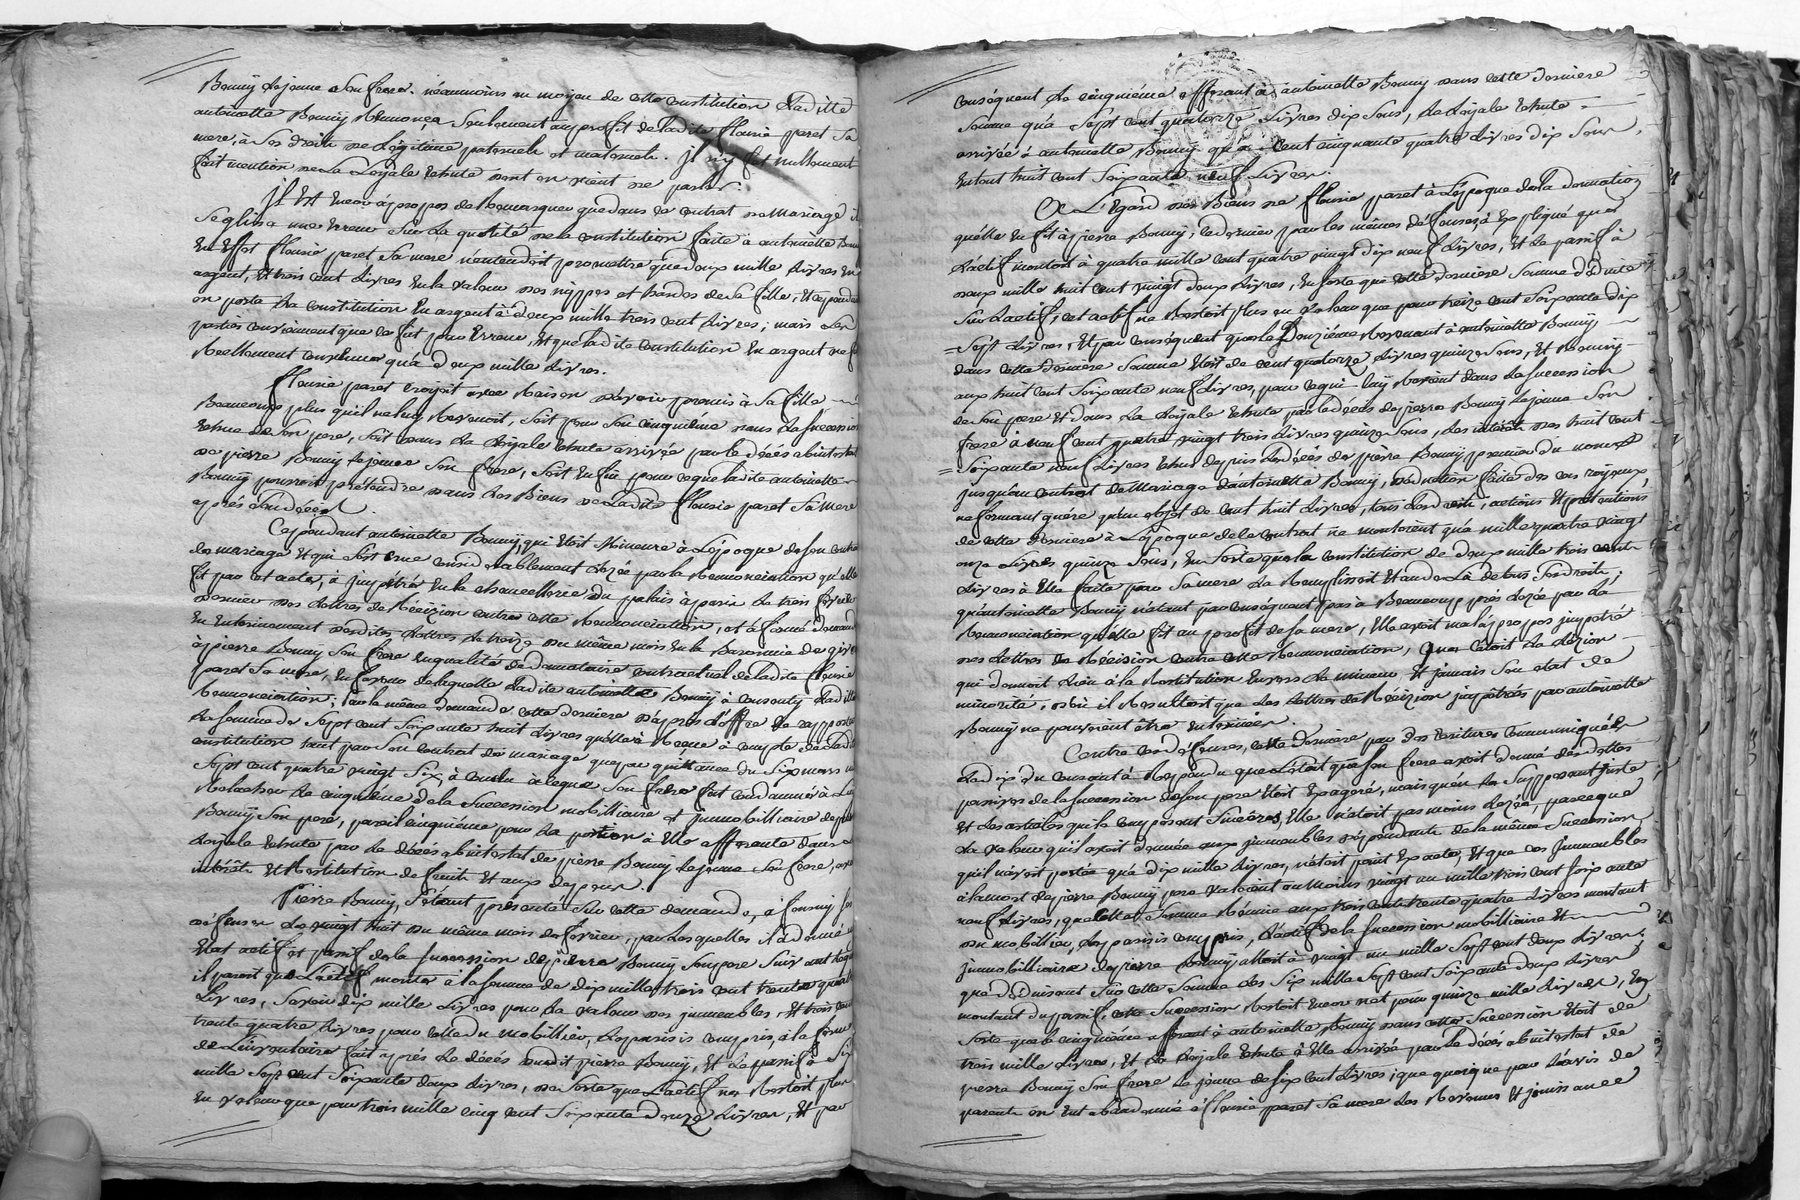 Bonnÿ le jeune son frere. néanmoins au moyen de cette constitution Laditte
antoinette Bonnÿ Renonça Seulement au profit de Ladite flourie paret Sa
mere, à Ses droits de Légitime paternels et maternels. Il n'y fut nullement
fait mention de La Loÿale Echute dont on vient de parler.
Il Est Encor àpropos de Remarquer que dans ce contrat de Mariage il
Se glissa une Erreur Sur La quotité de la constitution faite à antoinette Bonnÿ
En Effet flourie paret Sa mere n'entendoit promettre que deux mille Livres En
argent, Et trois cent Livres En la valeur des nippes et hardes de Sa fille, Et cependant
on porta La constitution En argent à deux mille trois cent Livres; mais Les
parties conviennent que ce fut par Erreur, Et que ladite constitution En argent ne fut
Réellement convenue qu'à deux mille Livres.
flourie paret croyoit avec Raison d'avoir promis à Sa fille
Beaucoup plus qu'il ne luÿ Revenoit, Soit pour Son cinquième dans La Succession
Echue de Son pere, Soit dans La Loÿale Echute arrivée par le décés abintestat
de pierre Bonnÿ Le jeune Son frere, Soit Enfin pour ce que Ladite antoinette
Bonnÿ pourroit prétendre dans Les Biens de Ladite flourie paret Sa Mere
après Son décès.
Cependant antoinette Bonnÿ, qui Etoit Mineure à L'époque de Son contrat
de mariage Et qui S'est crue considérablement Lézée par la Renonciation qu'elle
fit par cet acte, à impetré En la chancellerie du palais à paris Le trois fevrier
dernier des Lettres de Récizion contre cette Renonciation, et à formé demande
En Enterinement desdites Lettres Le treize du même mois En la Baronnie de
à pierre Bonnÿ Son frere En qualité de donnataire contractuel de ladite flourie
paret Sa mere, En faveur de laquelle Ladite antoinette Bonnÿ à consenty Ladite
Renonciation; par la même demande cette derniere d'après L'offre de rapporter
La Somme de Sept cent Soixante huit Livres qu'elle à Reçue à compte de Ladite
constitution tant par Son contrat de mariage que par quittance du Six mars mil
Sept cent quatre vingt Six, à conclu à ceque Son frere fut condamné à Lui
Relacher Le cinquième de la Succession mobilliaire et Immobilliaire de pierre
Bonnÿ Son pere, pareil cinquième pour La portion à Elle afferente dans la
Loÿale Echute par Le décès abintestat de pierre Bonnÿ Le jeune Son frere, avec
intérêts Et Restitution de fruits Et aux dépens.
Pierre Bonnÿ S'étant présenté Sur cette demande, à fourny Ses
défenses Le vingt huit du même mois de fevrier, par Lesquelles il a donné un
Etat actif et passif de la Succession de pierre Bonnÿ Son pere Suivant Lequel
il paroit que L'actif montoit à la Somme de dix mille trois cent trente quatre
Livres, Savoir dix mille Livres pour La valeur des immeubles, Et trois cent
trente quatre Livres pour celle du Mobilier, Les parisis compris, à la forme
de L'inventaire fait après Le décès dudit pierre Bonnÿ, Et Le passif à Six
mille Sept cent Soixante deux Livres, de Sorte que L'actif ne Restoit plus
En valeur que pour trois mille cinq cent Soixante douze Livres, Et par
conséquent Le cinquième afferant à antoinette Bonnÿ dans cette derniere
Somme qu'à Sept cent quatorze Livres dix Sous, La Loÿale Echute
arrivée à antoinette Bonnÿ qu'à cent cinquante quatre Livres dix Sous,
En tout huit cent Soixante neuf Livres.
A L'Egard des Biens de flourie paret à L'époque de La donnation
qu'elle En fit à pierre Bonnÿ, ce dernier par les mêmes défenses, à Expliqué que
L'actif montoit à quatre mille cent quatre vingt dix neuf Livres, Et Le passif à
deux mille huit cent vingt deux Livres, En Sorte que cette derniere Somme déduite
Sur L'actif, cet actif ne Restoit plus en valeur que pour treize cent Soixante dix
Sept Livres, Et par conséquent que le Douzième Revenant à antoinette Bonnÿ,
dans cette derniere Somme Etoit de cent quatorze Livres quinze Sous, Et Réunis
aux huit cent Soixante neuf Livres, pour ce qui luy Revient dans La Succession
de Son pere Et dans La Loÿale Echute par le décès de pierre Bonnÿ Le jeune Son
frere à neuf cent quatre vingt trois Livres quinze Sous, Les intérêts des huit cent
Soixante neuf Livres Echus depuis Le décès de pierre Bonnÿ premier du nom
jusqu'au contrat de Mariage d'antoinette Bonnÿ, déduction faite des cas royaux,
ne formant guére qu'un objet de cent huit Livres, tous Les droits, actions Et prétentions
de cette derniere à L'époque de ce contrat ne montoient qu'à mille quatre vingt
onze Livres quinze Sous, En Sorte que la constitution de deux mille trois cent
Livres à Elle faite par Sa mere La Remplissoit Et au de Là de tous Ses droits;
qu'antoinette Bonnÿ n'étant par conséquent pas à Beaucoup près Lézée par La
Renonciation qu'elle fit au profit de Sa mere, Elle avoit mal àpropos impetré
des Lettres de Récizion contre cette Renonciation, que c'étoit La Lézion
qui donnoit Lieu à la Restitution Envers Le mineur, Et jamais Son état de
minorité, d'où il Resultoit que Les Lettres de Récizion impetrées par antoinette
Bonnÿ ne pouvoient être Enterinées.
Contre ces défenses, cette derniere par des Ecritures communiquées
Le dix du courant à Répondu que L'état que Son frere avoit donné des dettes
passives de la Succession de Son pere Etoit Exageré, mais qu'en Le Supposant juste
Et Les articles qui le composent Sincères, Elle n'étoit pas moins Lezée, parceque
La valeur qu'il avoit donnée aux immeubles dépendants de la même Succession,
qu'il n'avoit portée qu'à dix mille Livres, n'étoit point Exacte, Et que ces Immeubles
à la mort de pierre Bonnÿ pere valoient au Moins vingt un mille trois cent Soixante
neuf Livres, que cette Somme Réunie aux trois cent trente quatre Livres montant
du mobilier, Les parisis compris, L'actif de la Succession mobilliaire Et
Immobilliaire de pierre Bonnÿ alloit à vingt un mille Sept cent deux Livres;
que déduisant Sur cette Somme Les Six mille Sept cent Soixante deux Livres
montant du passif, cette Succession Restoit Encor net pour quinze mille Livres, En
Sorte que le cinquième afferant à antoinette Bonnÿ dans cette Succession Etoit de
trois mille Livres, Et La Loÿale Echute à Elle arrivée par Le décès abintestat de
pierre Bonnÿ Son frere Le jeune de Six cent Livres; que quoique par L'avis de
parents on Eut abandonné à flourie paret Sa mere Les Revenus Et jouissance